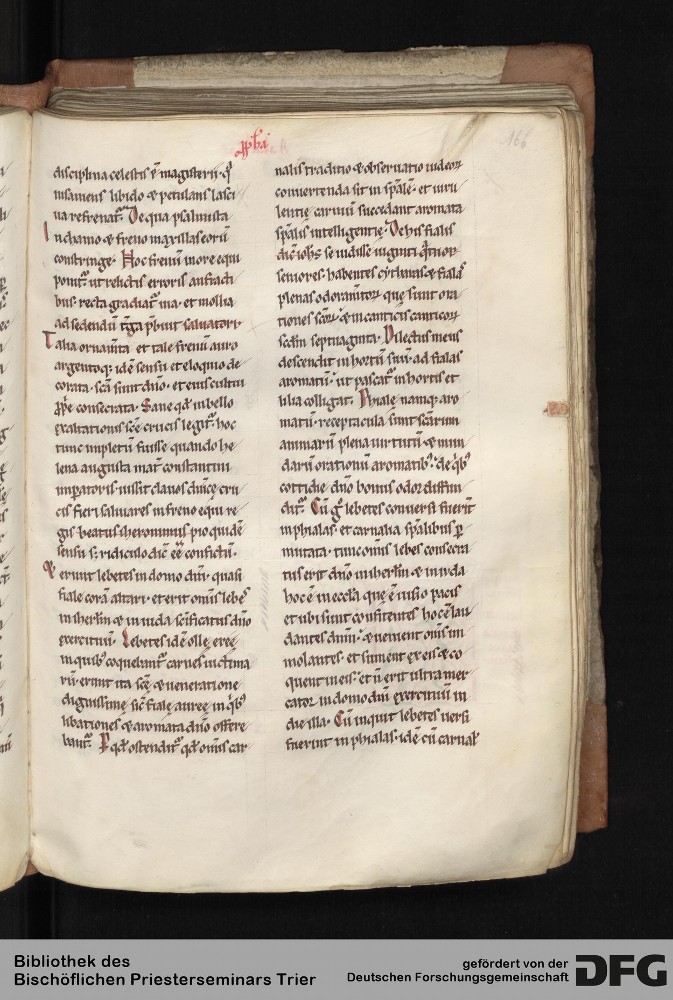 166
disciplina celestis ē magisterii. q̄
insaniens libido & petulans lasci
uia refrenat᷑. De qua psalmista
In chamo & freno maxillas eorū
constringe. Hoc frenū in ore equi
ponit᷑ ut relictis erroris anfracti
bus. recta gradiat᷑ uia. et mollia
ad sedendū t̄ga p̄beat saluatori.
Talia ornam̄ta et tale frenū auro
argentoq; idē sensu et eloquio de
corata. scā sunt dn̄o. et eius cultui
ꝓp̄e consecrata. Sane qd̄ in bello
exaltationis scē crucis legit᷑. hoc
tunc impletū fuisse quando he
lena augusta mat̄ constantini
imperatoris iussit clauos dn̄icę cru
cis fieri saluares in freno equi re
gis. beatus iheronimus pio quidē
sensu s; ridiculo dic̄ eē confictū.
& erunt lebetes in domo dn̄i. quasi
fiale corā altari. et erit omīs lebes
in iherlm̄ & in iuda sc̄ificatus dn̄o
exercituū. Lebetes idē ollę ereę
in quib; coquebant᷑ carnes uictima
rū. erunt ita scē & ueneratione
dignissimę. sic̄ fialę aureę in q̄b;
libationes & aromata dn̄o offere
bant᷑. P qd̄ ostendit᷑ qd̄ omīs car
nalis traditio & obseruatio iudeoꝝ
conuertenda sit in sp̄alē. et uiru
lentię carniū succedant aromata
sp̄alis intelligentię. De his fialis
dic̄ ioh̄s se uidisse uiginti q̄tuor
seniores. habentes cytharas & fialas
plenas odoram̄toꝝ. que sunt ora
tiones scōꝝ. & in canticis canticoꝝ
scdm̄ septuaginta. Dilectus meus
descendit in hortū suū. ad fialas
aromatū. ut pascat᷑ in hortis et
lilia colligat. Phialę namq; aro
matū receptacula sunt scārum
animarū plena uirtutū & mun
darū orationū aromatib;. de q̄b;
cottidie dn̄o bonus odor diffun
dit᷑. Cū ḡ lebetes conuersi fuerīt
in phialas. et carnalia sp̄alibus ꝑ
mutata. tunc omīs lebes consecra
tus erit dn̄o in iherlm̄ & in iuda
hoc ē in eccl̄a. que ē uisio pacis
et ubi sunt confitentes hoc ē lau
dantes dn̄m. & uenient om̄s im
molantes. et sument ex eis & co
quent in eis. et n̄ erit ultra mer
cator in domo dn̄i exercituū in
die illa. Cū inquit lebetes uersi
fuerint in phialas. idē cū carnal̄
Bibliothek des
Bischöflichen Priesterseminars Trier
gefördert von der
Deutschen Forschungsgemeinschaft
DFG